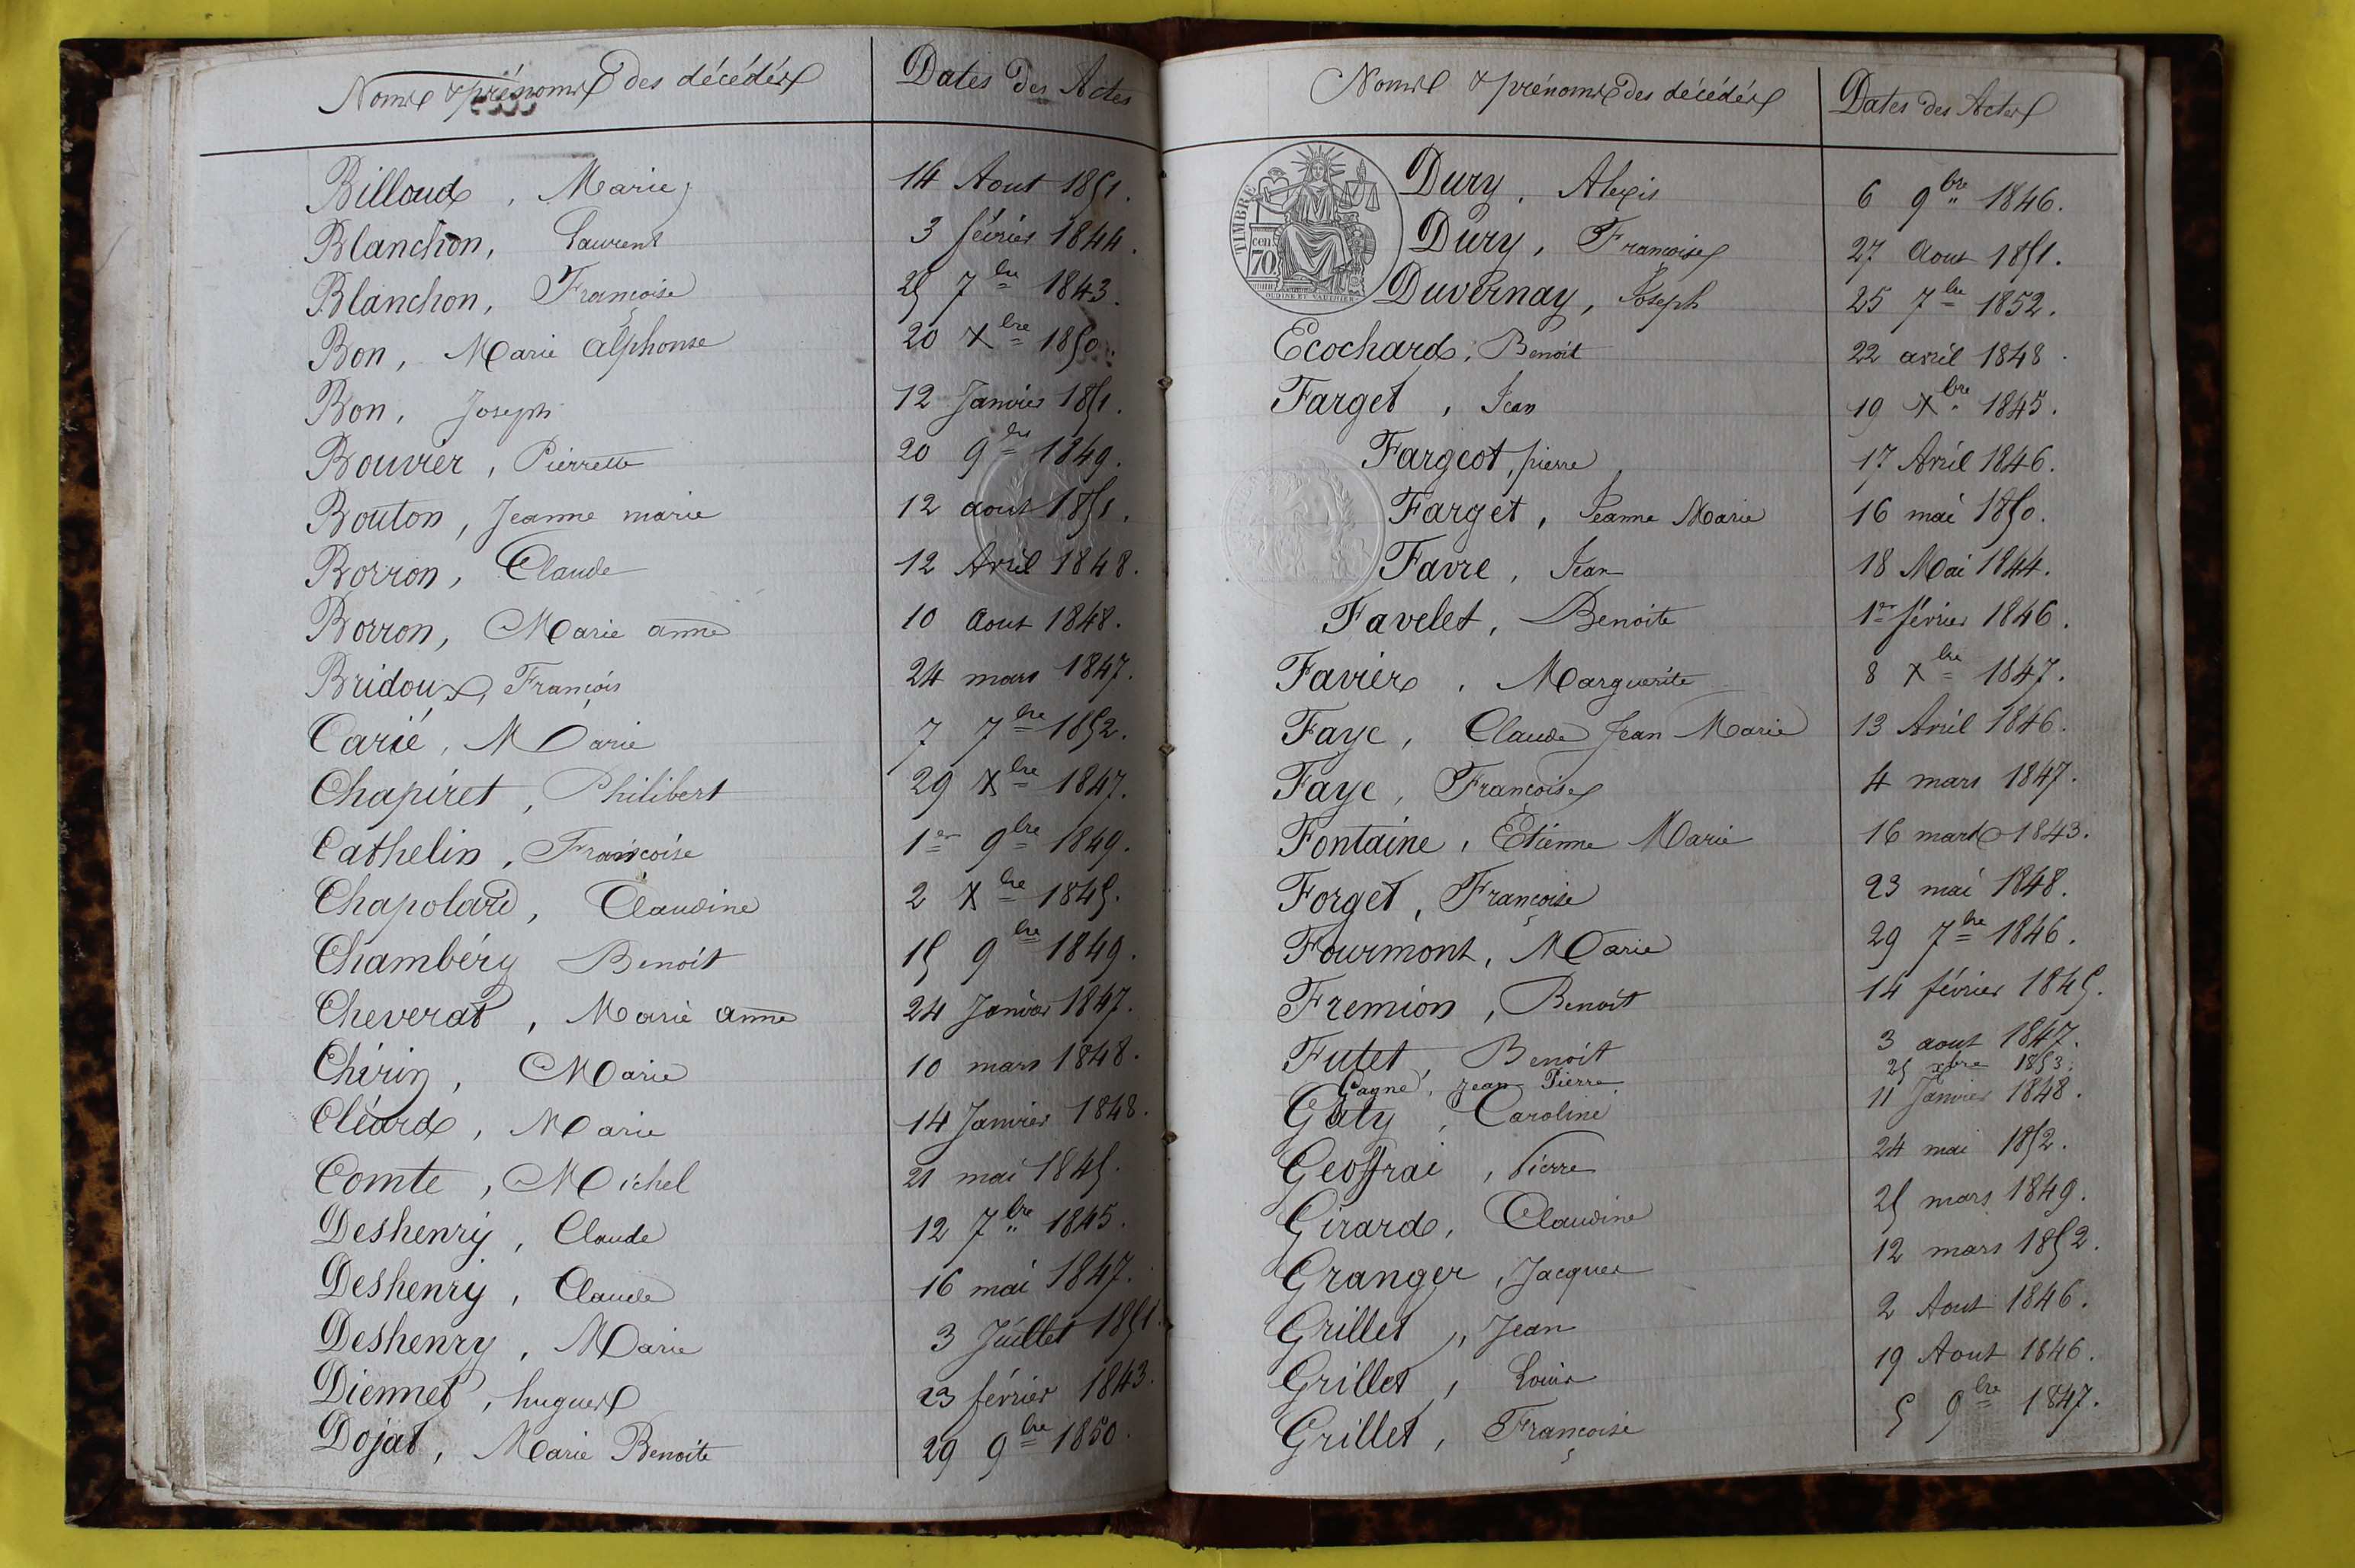 Noms & prénoms des décédés Dates des Actes
Billoud, Marie 14 Aout 1851.
Blanchon, Laurent 3 février 1844.
Blanchon, Françoise 25 7bre 1843.
Bon, Marie alphonse 20 Xbre 1850.
Bon, Joseph 12 Janvier 1851.
Bouvier, Pierrette 20 9bre 1849.
Bouton, Jeanne marie 12 aout 1851.
Borron, Claude 12 Avril 1848.
Borron, Marie anne 10 Aout 1848.
Bridoux, François 24 mars 1847.
Carié, Marie 7 7bre 1852.
Chapiret, Philibert 29 Xbre 1847.
Cathelin, Françoise 1er 9bre 1849.
Chapolard, Claudine 2 Xbre 1845.
Chambéry Benoit 15 9bre 1849.
Cheverat, Marie anne 24 Janvier 1847.
Chérin, Marie 10 mars 1848.
Cléard, Marie 14 Janvier 1848.
Comte, Michel 21 mai 1845.
Deshenry, Claude 12 7bre 1845.
Deshenry, Claude 16 mai 1847.
Deshenry, Marie 3 Juillet 1851.
Diennet, hugues 23 février 1843.
Dojat, Marie Benoite 29 9bre 1850.
Noms & prénoms des décédés Dates des Actes
TIMBRE
cen
70
OUDINÉ ET VAUTHIER
Dury, Alexis 6 9bre 1846.
Dury, Françoise 27 Aout 1851.
Duvernay, Joseph 25 7bre 1852.
Ecochard, Benoit 22 avril 1848.
Farget, Jean 19 Xbre 1845.
Fargeot, pierre 17 Avril 1846.
Farget, Jeanne Marie 16 mai 1850.
Favre, Jean 18 Mai 1844.
Favelet, Benoite 1er février 1846.
Favier, Marguerite 8 Xbre 1847.
Faye, Claude Jean Marie 13 Avril 1846.
Faye, Françoise 4 mars 1847.
Fontaine, Etienne Marie 16 mars 1843.
Forget, Françoise 23 mai 1848.
Fourmont, Marie 29 7bre 1846.
Fremion, Benoit 14 février 1845.
Futet, Benoit 3 aout 1847.
Gagne, Jean Pierre 25 xbre 1853.
Gaty, Caroline 11 Janvier 1848.
Geoffrai, Pierre 24 mai 1852.
Girard, Claudine 25 mars 1849.
Granger, Jacques 12 mars 1852.
Grillet, Jean 2 Aout 1846.
Grillet, Louis 19 Aout 1846.
Grillet, Françoise 5 9bre 1847.